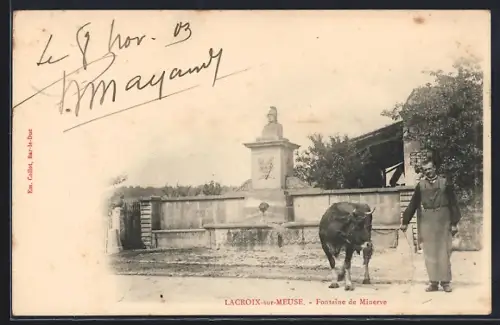 Le 8 Nov. 03
Em. Collot, Bar-le-Duc
LACROIX-sur-MEUSE. - Fontaine de Minerve